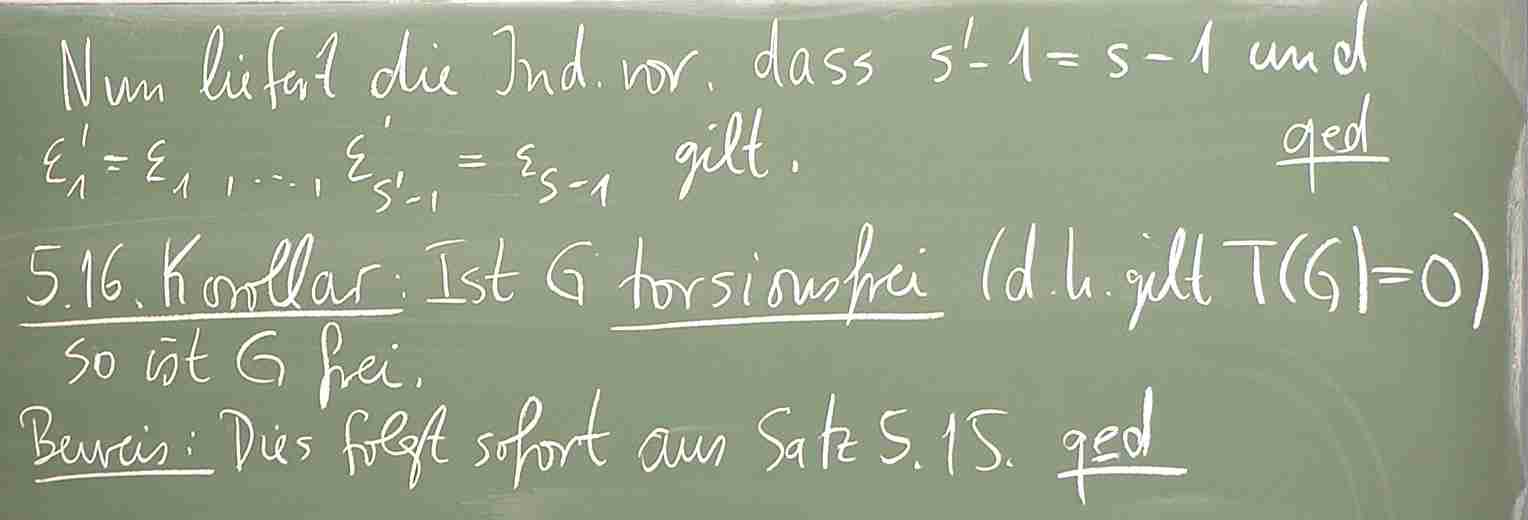 Nun liefert die Ind. vor. dass s'-1 = s-1 und
ε'₁ = ε₁, ..., ε'_{s'-1} = ε_{s-1} gilt. qed
5.16. Korollar: Ist G torsionsfrei (d.h. gilt T(G)=0)
so ist G frei.
Beweis: Dies folgt sofort aus Satz 5.15. qed